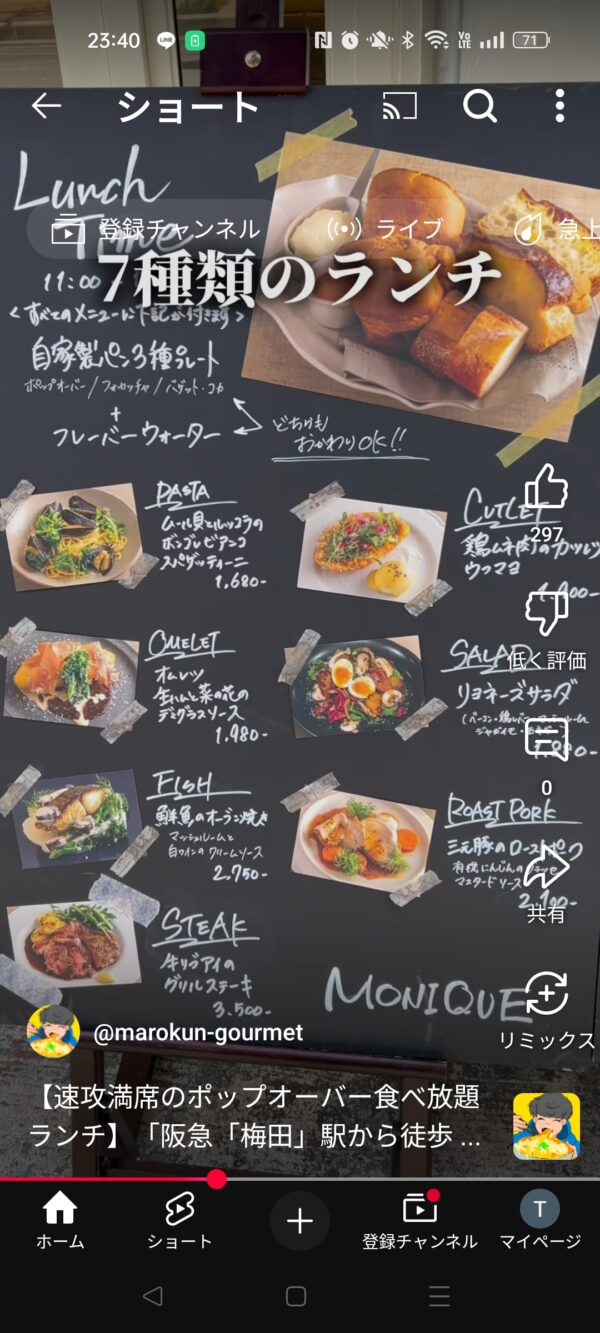 23:40
71
ショート
Lunch
Time
登録チャンネル
ライブ
急上
11:00
7種類のランチ
<すべてのメニューに下記が付きます>
自家製パン3種プレート
ポップオーバー/フォカッチャ/バゲット・コカ
+
フレーバーウォーター
どちらも
おかわりOK!!
PASTA
ムール貝とルッコラの
ボンゴレビアンコ
スパゲッティーニ
1,680-
CUTLET
鶏ムネ肉のカツレツ
ウフマヨ
297
低く評価
OMELET
オムレツ
生ハムと菜の花の
デミグラスソース
1,980-
SALAD
リヨネーズサラダ
0
FISH
鮮魚のオーブン焼き
マッシュルームと
白ワインのクリームソース
2,750-
ROAST PORK
三元豚のローストポーク
有機にんじんの
マスタードソース
共有
STEAK
牛リブアイの
グリルステーキ
3,500-
MONIQUE
リミックス
@marokun-gourmet
【速攻満席のポップオーバー食べ放題
ランチ】「阪急「梅田」駅から徒歩 ...
ホーム
ショート
登録チャンネル
T
マイページ